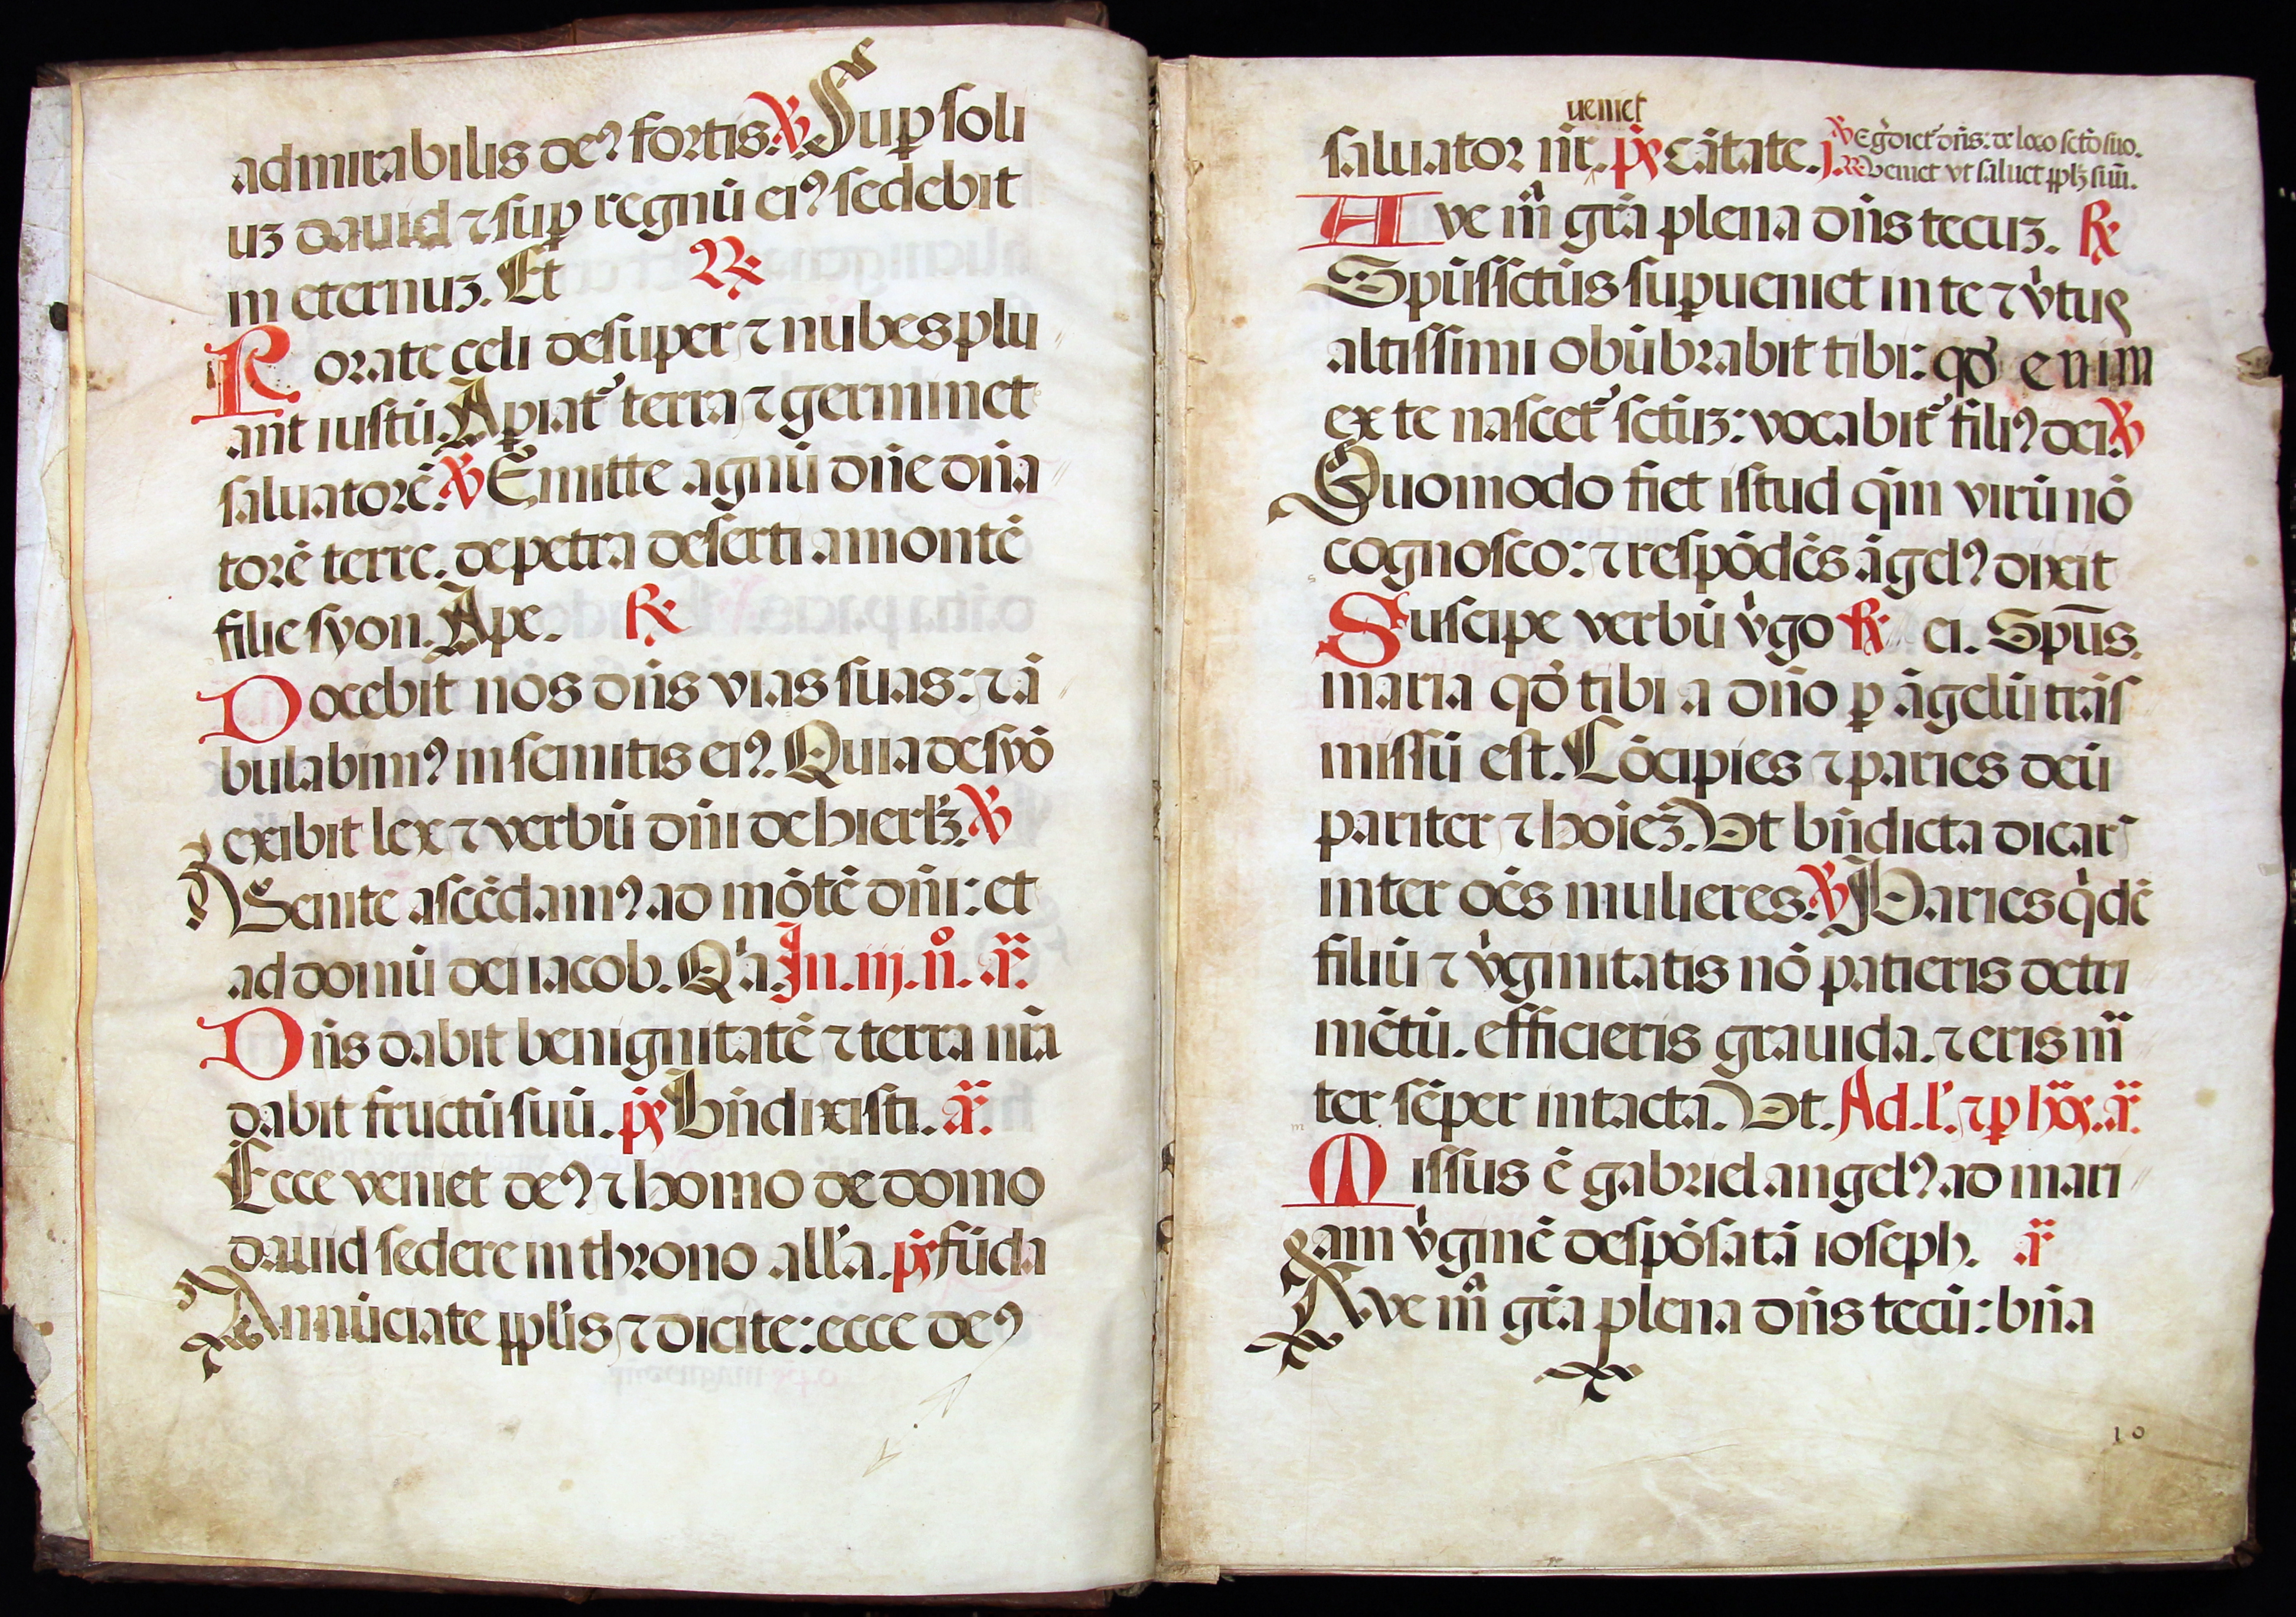 admirabilis deꝰ fortis. ℣ Suꝑ soli
uꝫ dauid ⁊ suꝑ regnū eiꝰ sedebit
in eternuꝫ. Et ℟
Rorate celi desuper ⁊ nubes plu
ant iustū. Aꝑiat᷑ terra ⁊ germinet
saluatorē. ℣ Emitte agnū dn̄e dn̄a
torē terre. de petra deserti a montē
filie syon. Ape. ℟
Docebit nos dn̄s vias suas: ⁊ ā
bulabimꝰ in semitis eiꝰ. Quia de syō
exibit lex ⁊ verbū dn̄i de hierlꝫ. ℣
Uenite ascēdamꝰ ad mōtē dn̄i: et
ad domū dei iacob. Qͥa. In. iij. n̊. a᷒.
Dn̄s dabit benignitatē ⁊ terra nr̄a
dabit fructū suū. p̄s Bn̄dixisti. a᷒.
Ecce veniet deꝰ ⁊ homo de domo
dauid sedere in throno all'a. p̄s fūda
Annūciate ppl'is ⁊ dicite: ecce deꝰ
ueniet
saluator nr̄. p̄s cātate. j. ℣ Egͤdiet᷑ dn̄s: de loco sct̄o suo.
℟ veniet vt saluet pplꝫ suū.
Ave mͣ grā plena dn̄s tecuꝫ. ℟
Spūssctūs suꝑueniet in te ⁊ vͥtus
altissimi obūbrabit tibi: qð enim
ex te nascet᷑ sctūꝫ: vocabit᷑ filiꝰ dei. ℣
Quomodo fiet istud qm̄ virū nō
cognosco: ⁊ respōdēs āgelꝰ dixit
Suscipe verbū vͥgo ℟ ei. Spūs.
maria qð tibi a dn̄o ꝑ āgelū trās
missū est. Cōcipies ⁊ paries deū
pariter ⁊ hoīeꝫ. Ut bn̄dicta dicaris
inter oēs mulieres. ℣ Paries qͥdē
filiū ⁊ vͥginitatis nō patieris detri
mētū. efficieris grauida. ⁊ eris mͣ
ter sēper intacta. Ut. Ad. l'. ⁊ ꝑ hōs. a᷒.
Missus ē gabriel angelꝰ ad mari
am vͥginē despōsatā ioseph. a᷒
Ave mͣ grā plena dn̄s tecū: bn̄a
10